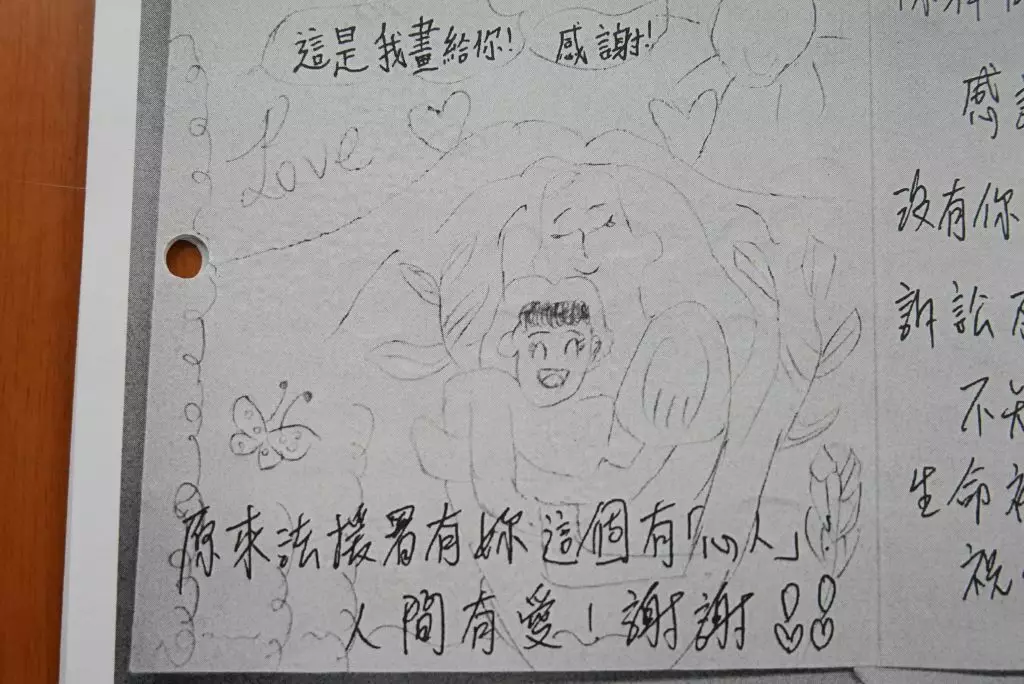 這是我畫給你! 感謝!
Love
原來法援署有妳這個有「心人」!
人間有愛!謝謝
感謝
沒有你
訴訟
不知
生命
祝